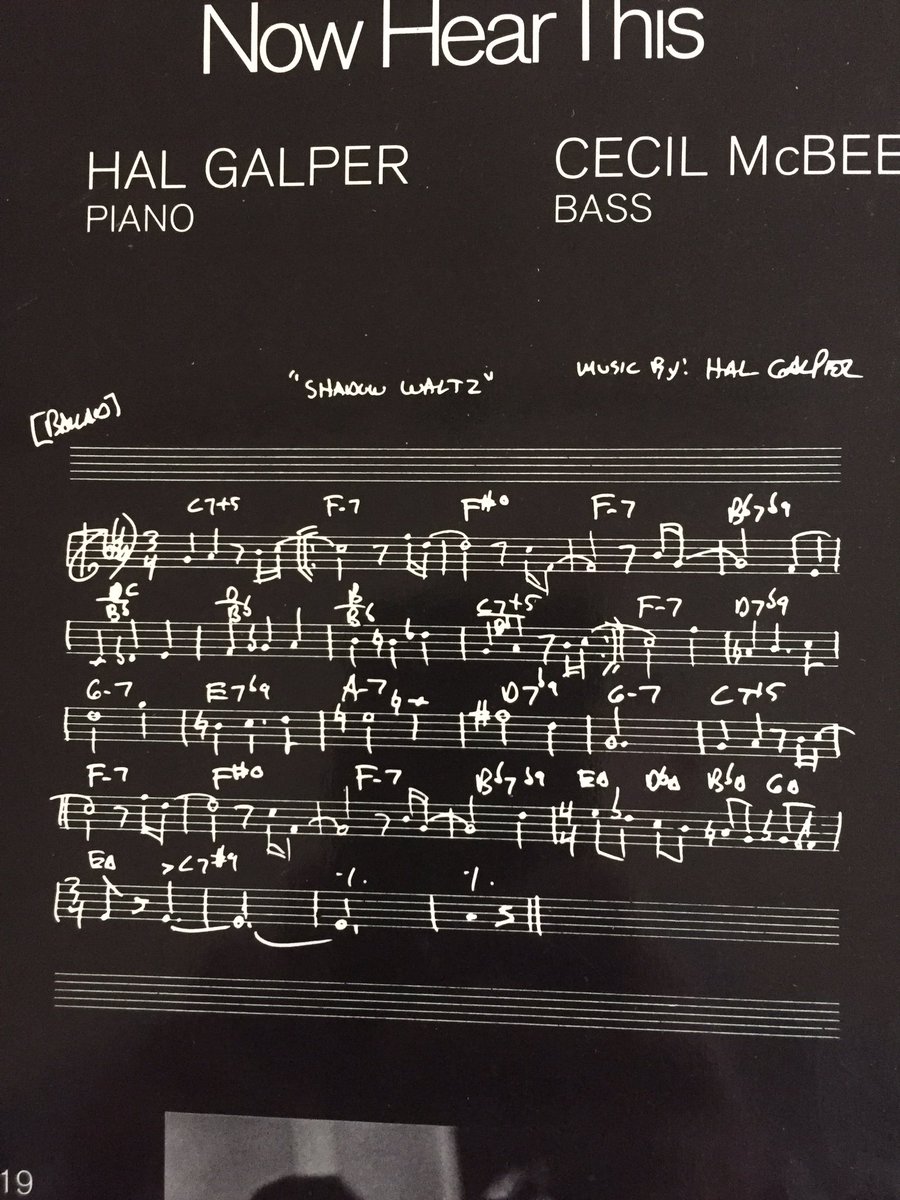 Now Hear This
HAL GALPER CECIL McBEE
PIANO BASS
"SHADOW WALTZ" MUSIC BY: HAL GALPER
[BALLAD]
C7+5 F-7 F#o F-7 Bb7b9
3/4
D/Bb B/Bb C7+5 F-7 D7b9
G-7 E7b9 A-7 D7b9 G-7 C7+5
F-7 F#o F-7 Bb7b9 E△ Db△ Bb△ G△
4/4
E△ >C7#9 ٪ ٪
3/4
19